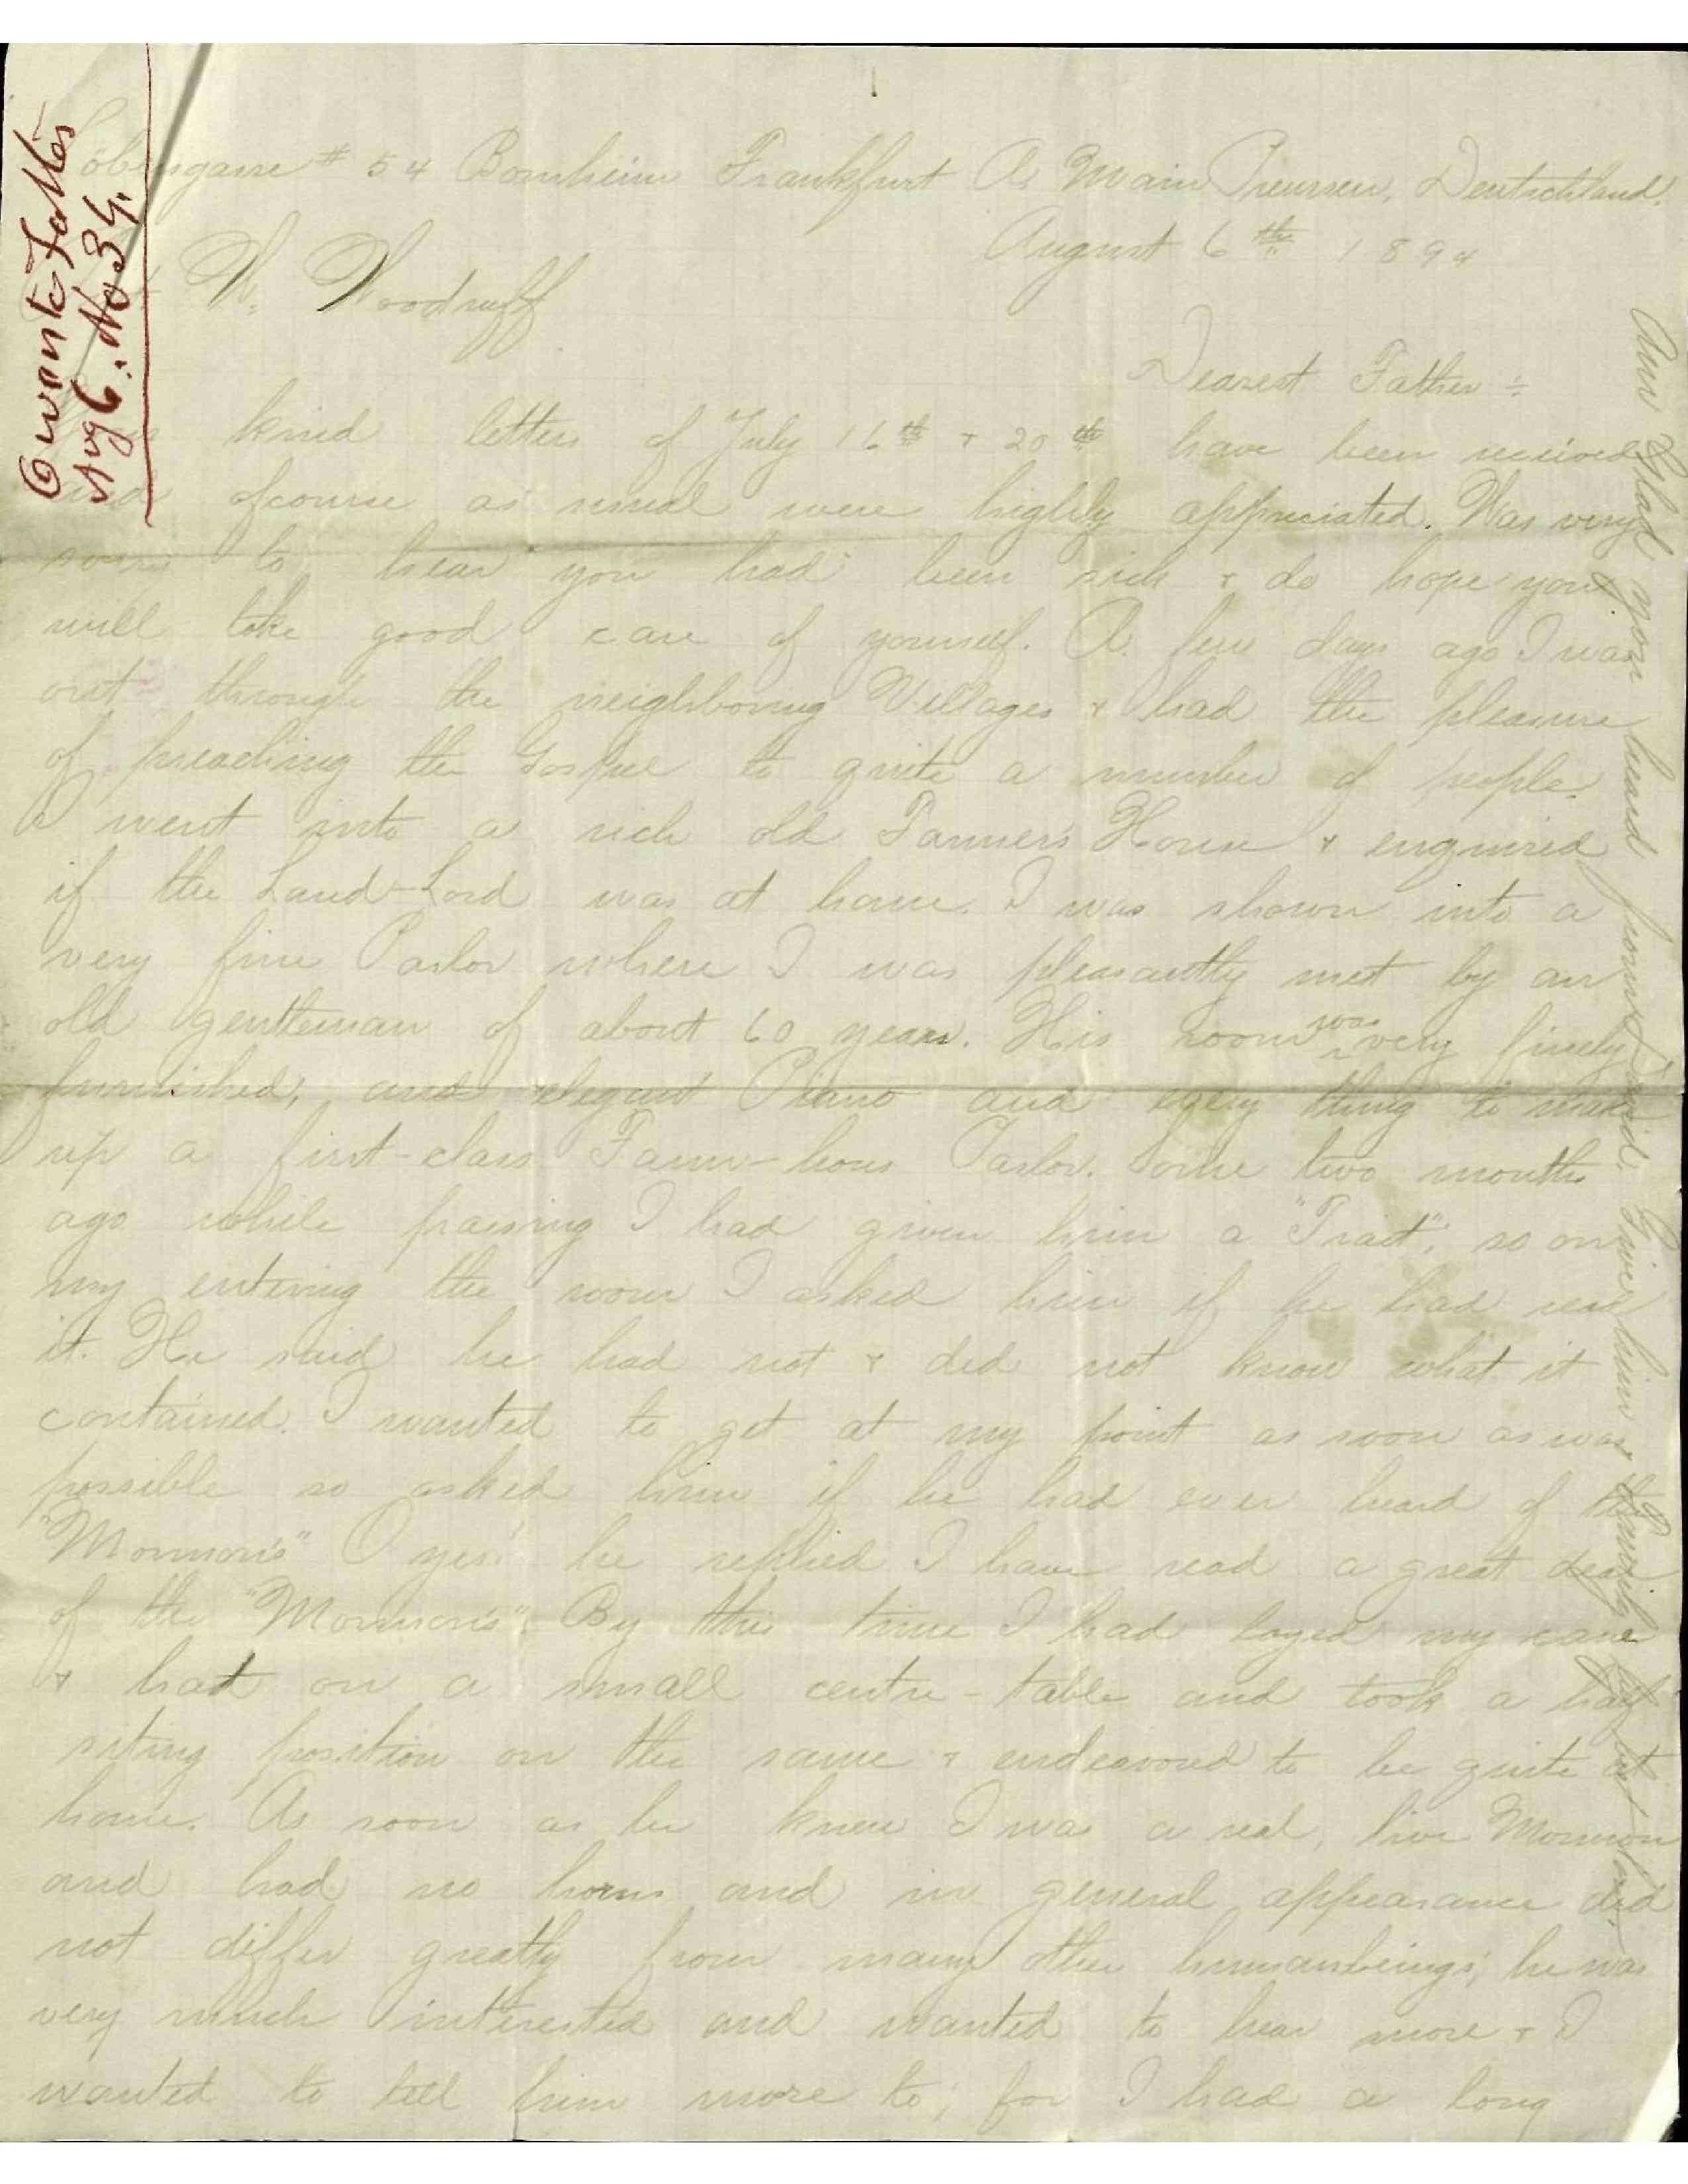 Owen to Father
Aug 6. No 34.
# 54 Bornheim Frankfurt A. Main Preussen, Deutschland.
August 6th 1894
W. Woodruff
Dearest Father :-
kind letters of July 16th + 20th have been received
and ofcourse as usual were highly appreciated. Was very
sorry to hear you had been sick + do hope you
will take good care of yourself. A few days ago I was
out through the neighboring Villages + had the pleasure
of preaching the Gospel to quite a number of people.
I went into a rich old Farmer's House + enquired
if the Land-Lord was at home. I was shown into a
very fine Parlor where I was pleasantly met by an
old gentleman of about 60 years. His room was very finely
furnished, and elegant Piano and every thing to make
up a first-class Farm-hous Parlor. Some two months
ago while passing I had given him a "Tract", so on
my entering the room I asked him if he had read
it. He said he had not + did not know what it
contained. I wanted to get at my point as soon as was
possible so asked him if he had ever heard of the
"Mormon's" O yes! he replied I have read a great deal
of the "Mormon's". By this time I had layed my cane
+ hat on a small centre-table and took a half
siting position on the same + endeavored to be quite at
home. As soon as he knew I was a real, live Mormon
and had no horns and in general appearance did
not differ greatly from many other humanbeings; he was
very much interested and wanted to hear more + I
wanted to tell him more to; for I had a long
Am Glad you heard from David. Give him + Family my best love.